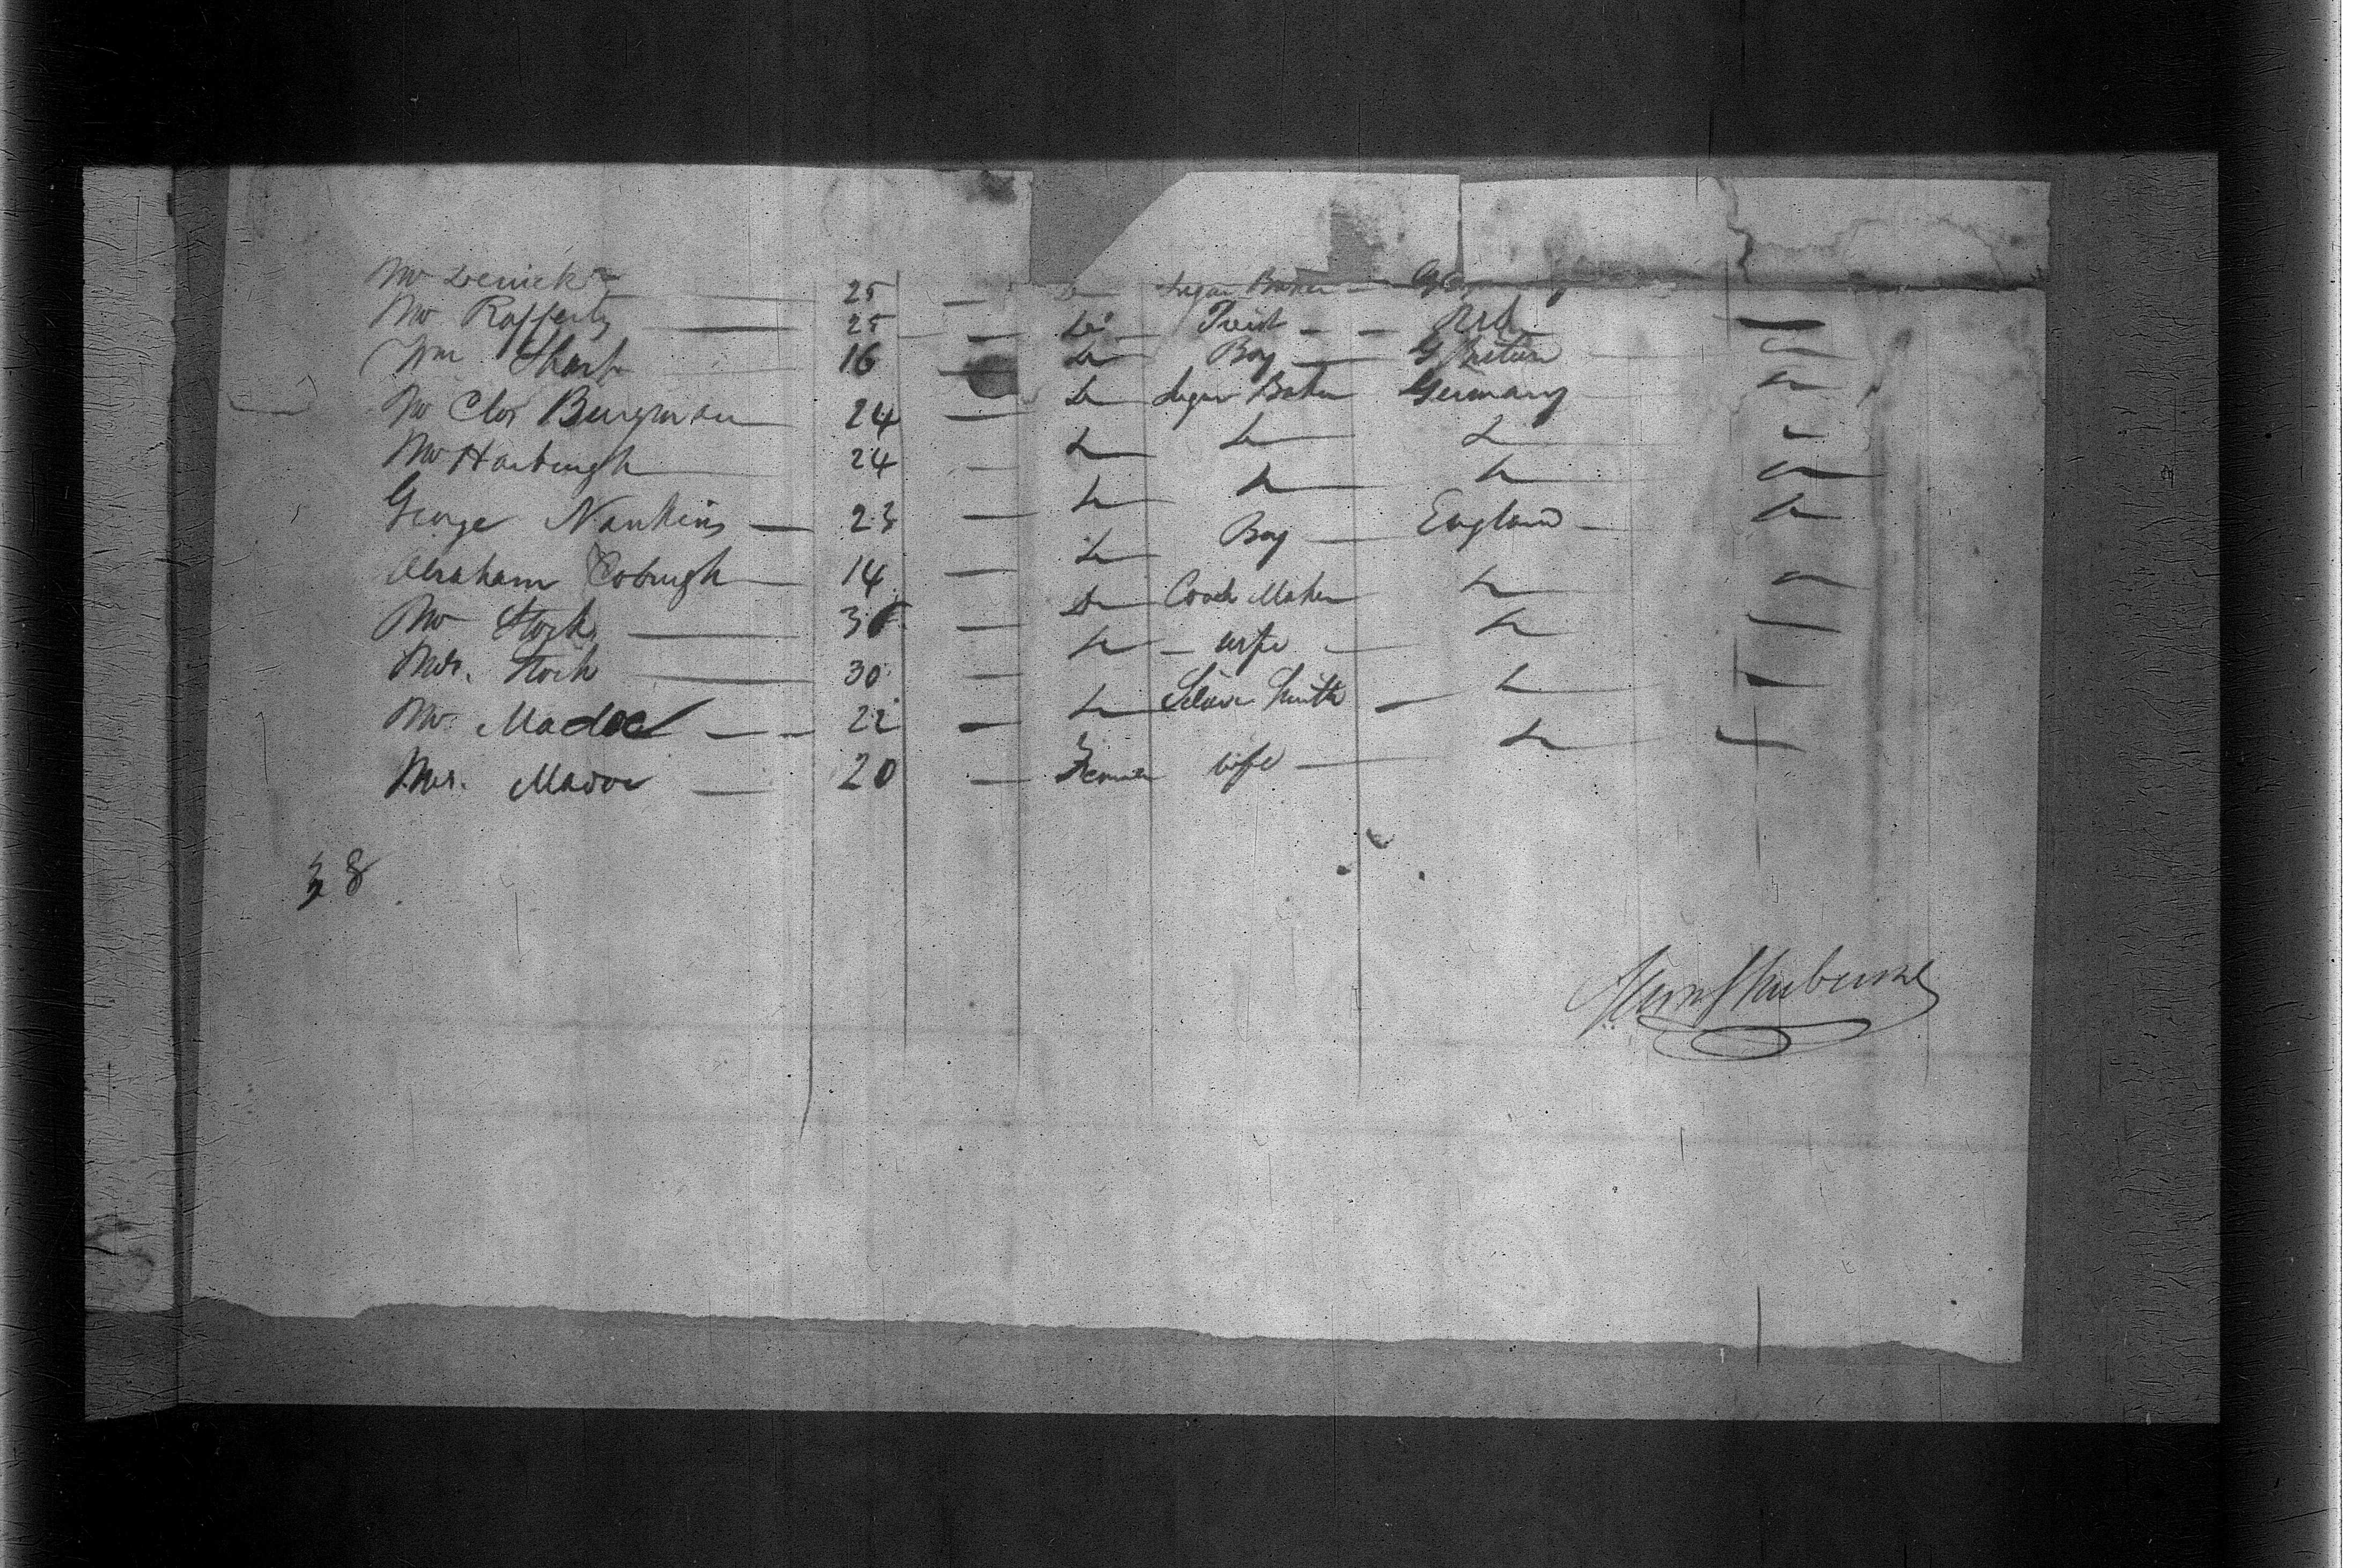 Mr Derick — 25 — Do Sugar Baker — Germany
Mr Rafferty — 25 — Do Priest — —
Wm Sharp 16 — Do Boy — G Britain — Do
Mr Clos Bergman 24 — Do Sugar Baker Germany Do
Mr Harburgh 24 — Do Do Do
George Nankins — 23 — Do Do Do Do
Abraham Coburgh 14 — Do Boy — England — Do
Mr Stock — 35 — Do Coach Maker Do Do
Mrs. Stock — 30 — Do — wife — Do —
Mr. Madoc — — 22 — Do Silver Smith — Do —
Mrs. Madoc — 20 — Female wife — Do —
38